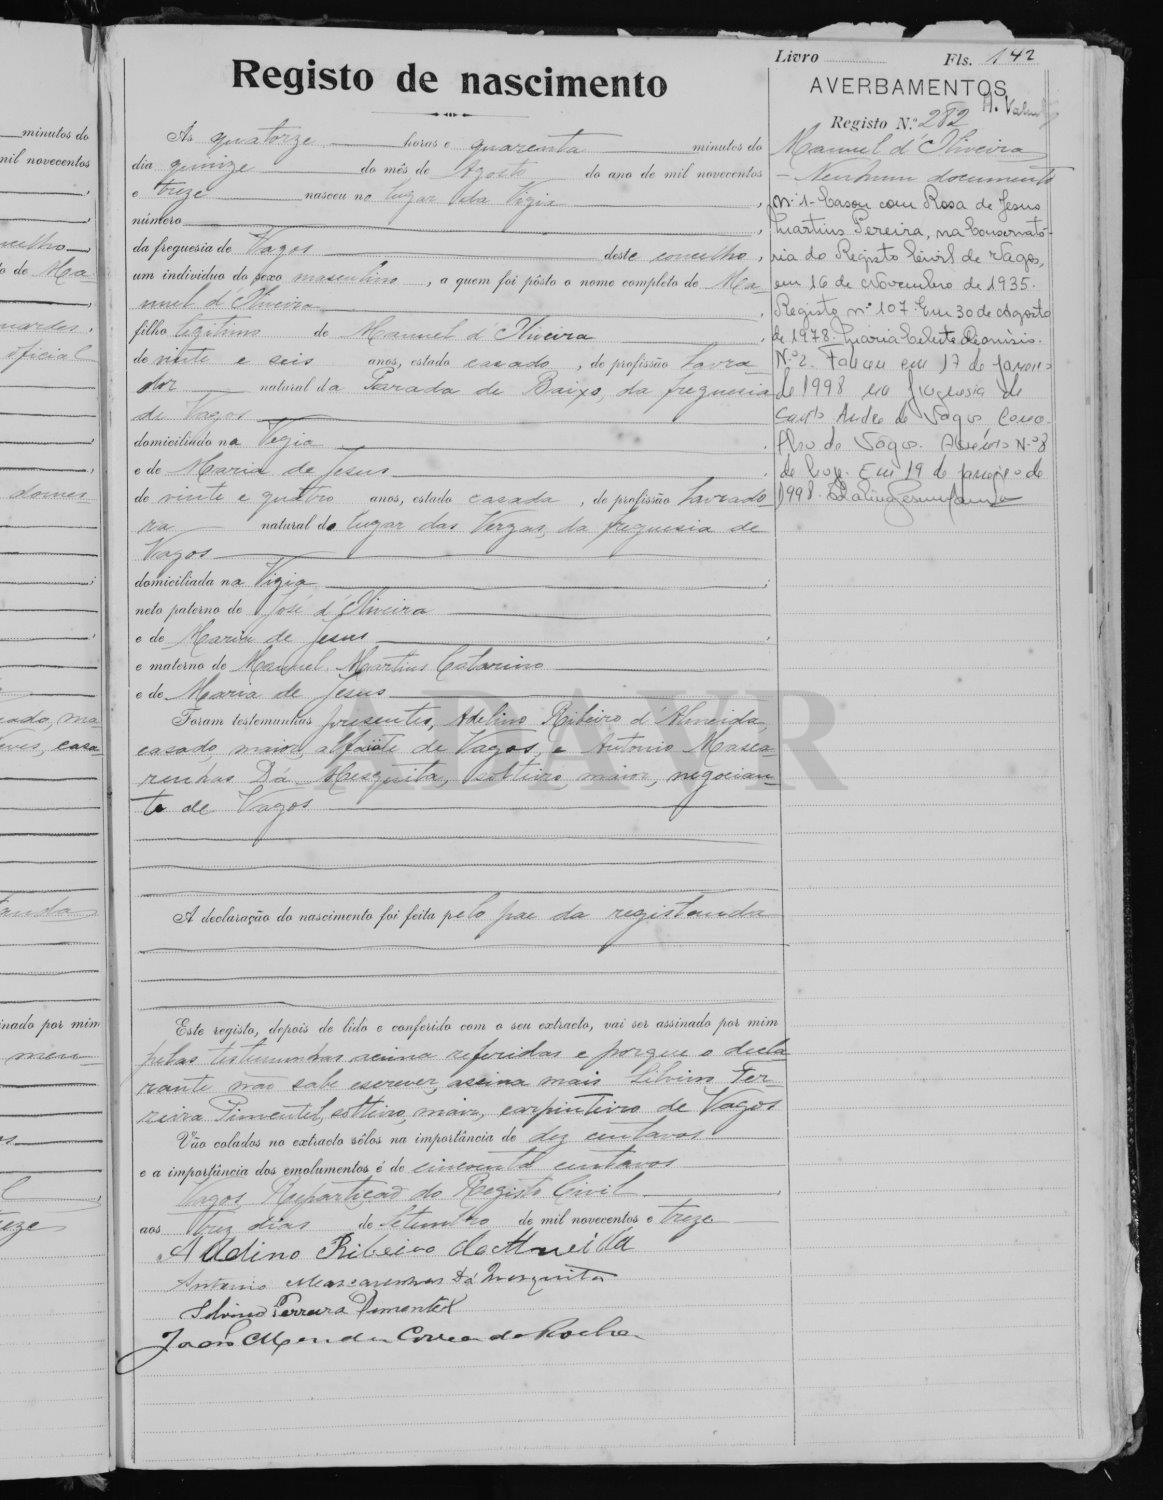 Livro Fls. 142
Registo de nascimento
Ás quatorze horas e quarenta minutos do
dia quinze do mês de Agosto do ano de mil novecentos
e treze nasceu no lugar da Vigia,
número
da freguesia de Vagos deste concelho,
um individuo do sexo masculino, a quem foi pôsto o nome completo de Ma-
nuel d'Oliveira
filho legitimo de Manuel d'Oliveira
de vinte e seis anos, estado casado, de profissão lavra
dor natural da Parada de Baixo, da freguesia
de Vagos
domiciliado na Vigia
e de Maria de Jesus
de vinte e quatro anos, estado casada, de profissão lavrado
ra natural do lugar das Vergas, da freguesia de
Vagos
domiciliada na Vigia
neto paterno de José d'Oliveira
e de Maria de Jesus
e materno de Manuel Martins Catarino
e de Maria de Jesus
Foram testemunhas presentes, Adelino Ribeiro d'Almeida
casado, maior, alfaiate de Vagos, e Antonio Masca
renhas Dá Mesquita, solteiro maior, negocian-
te de Vagos
A declaração do nascimento foi feita pelo pae da registanda
Este registo, depois de lido e conferido com o seu extracto, vai ser assinado por mim
pelas testemunhas acima referidas e porque o decla
rante não sabe escrever, assina mais Silvino Fer-
reira Pimentel, solteiro, maior, carpinteiro de Vagos
Vão colados no extracto sêlos na importância de dez centavos
e a importância dos emolumentos é de cincoenta centavos
Vagos, Repartição do Registo Civil
aos trez dias de Setembro de mil novecentos e treze
Adelino Ribeiro de Almeida
Antonio Mascarenhas Dá Mesquita
Silvino Ferreira Pimentel
João Mendes Correa da Rocha
AVERBAMENTOS
Registo N.º 282
Manuel d'Oliveira
Nenhum documento
Nº 1- Casou com Rosa de Jesus
Martins Pereira, na Conservató-
ria do Registo Civil de Vagos,
em 16 de Novembro de 1935.
Registo nº 107. Em 30 de Agosto
de 1978. Maria Celeste Dionisio.
N.º 2. Faleceu em 17 de Janeiro
de 1998 na freguesia de
Santo André de Vagos Conce-
lho de Vagos. Assento N.º 8
de hoje. Em 19 de janeiro de
1998.
ADAVR
minutos do
mil novecentos
oficial
assinado por mim
treze